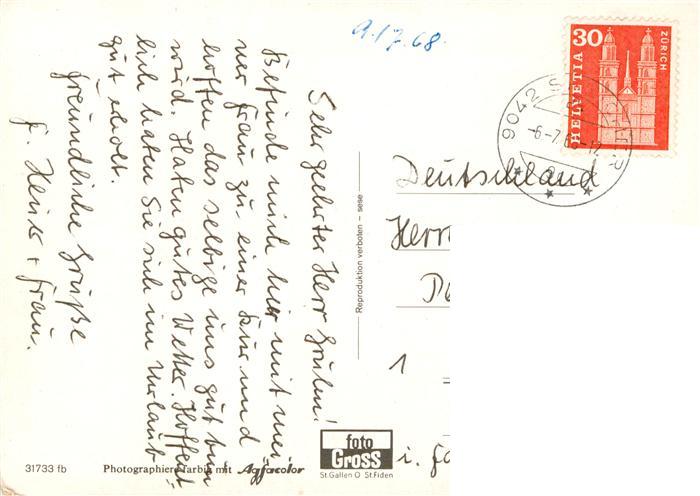 9.17.68.
30
HELVETIA
ZÜRICH
9042 S
-6.-7.6 -12
Sehr geehrter Herr
Befinde mich hier mit mei
ner Frau zu einer Kur und
hoffen das selbige uns gut tun
wird. Haben gutes Wetter. Hoffent-
lich haben Sie sich im Urlaub
gut erholt.
Freundliche Grüße
F. Heinis + Frau.
Reproduktion verboten - sese
Deutschland
Herrn
1
i.
foto
Gross
St.Gallen O St.Fiden
31733 fb
Photographiere farbig mit Agfacolor